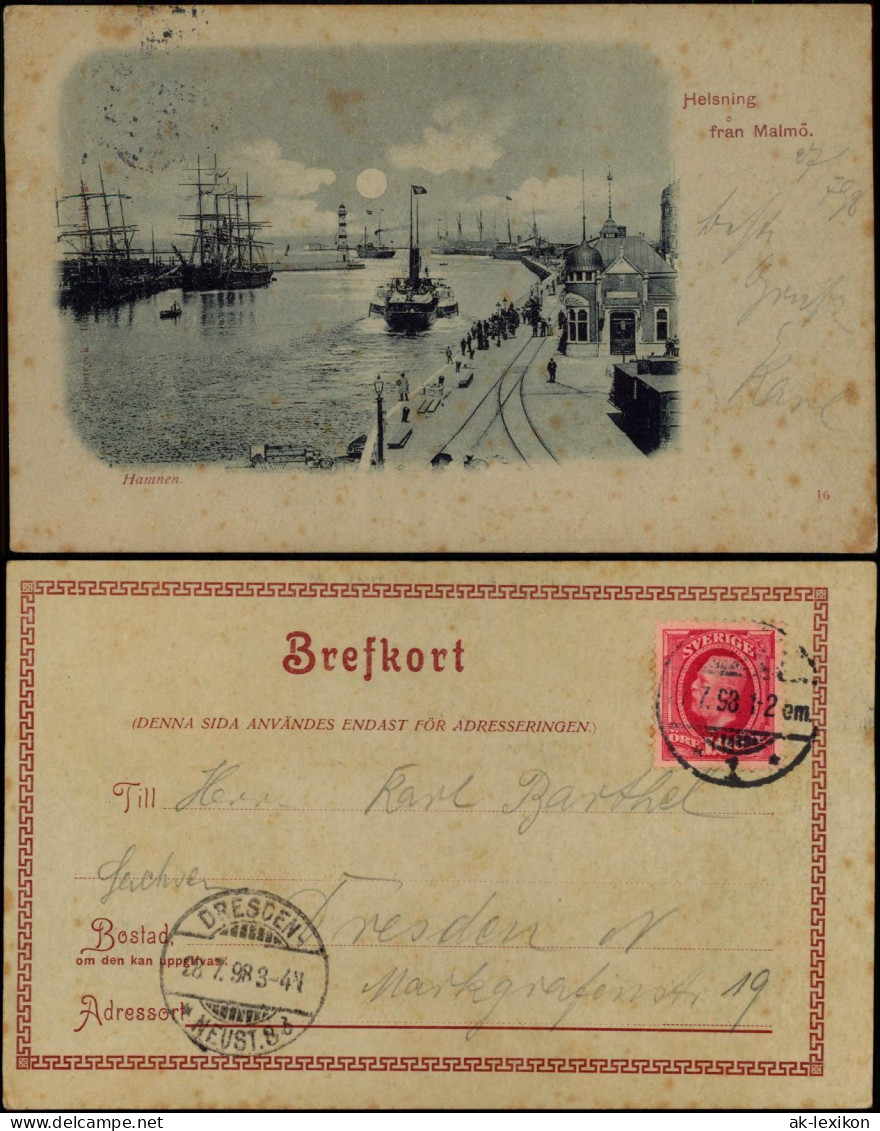 Helsning
från Malmö.
27/7 98
beste
Grüsse
Karl
Hamnen.
16
Brefkort
(DENNA SIDA ANVÄNDES ENDAST FÖR ADRESSERINGEN.)
SVERIGE
7.98 1-2 em.
ÖRE
1
Till Herrn Karl Barthel
Sachsen
Bostad, Dresden N
om den kan uppgifvas.
Markgrafenstr 19
Adressort
DRESDEN
28.7.98 3-4N
NEUST. 8 d
ak-lexikon.de
ak-lexikon